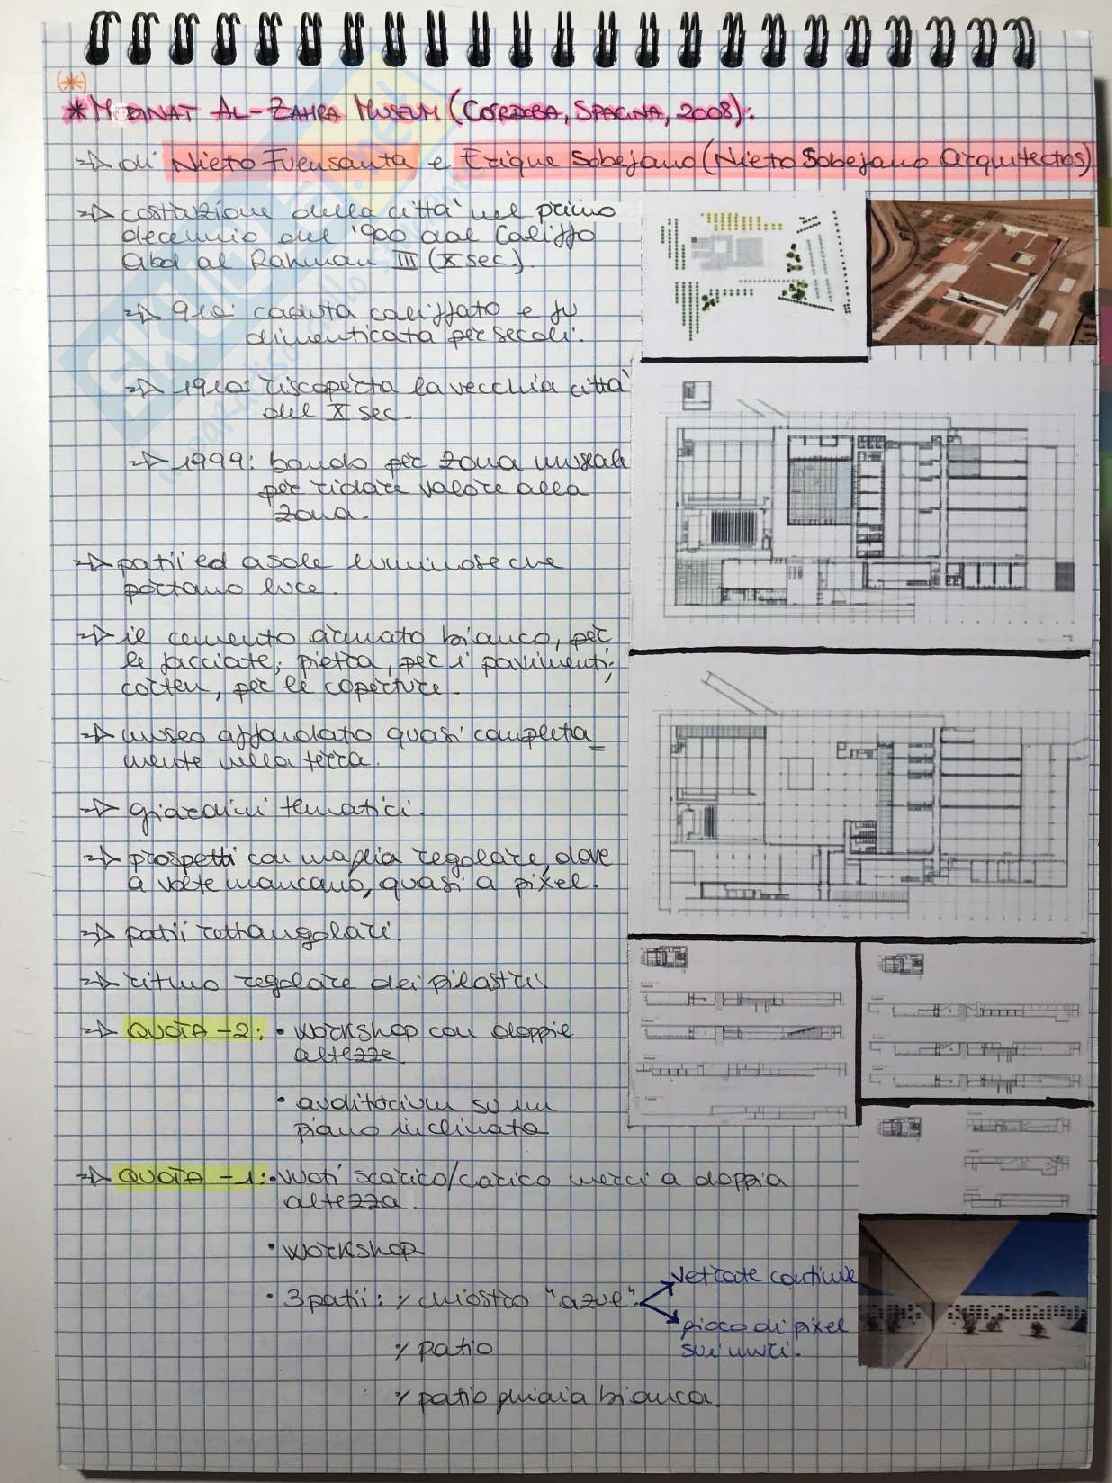 (*)
* MEDINAT AL-ZAHRA MUSEUM (CORDOBA, SPAGNA, 2008):
⇒ di Nieto Fuensanta e Erique Sobejano (Nieto Sobejano Arquitectos)
⇒ costruzione della città nel primo
decennio del '900 dal Califfo
Abd al Rahman III (X sec).
⇒ 910: caduta califfato e fu
dimenticata per secoli.
⇒ 1910: riscoperta la vecchia città
del X sec.
⇒ 1999: bando per zona museale
per ridare valore alla
zona.
⇒ patii ed asole luminose che
portano luce.
⇒ il cemento armato bianco, per
le facciate; pietra, per i pavimenti;
corten, per le coperture.
⇒ museo affondato quasi completa_
mente nella terra.
⇒ giardini tematici.
⇒ prospetti con maglia regolare, dove
a volte mancano, quasi a pixel.
⇒ patii rettangolari.
⇒ ritmo regolare dei pilastri
⇒ QUOTA -2: • workshop con doppie
altezze.
• auditorium su un
piano inclinato
⇒ QUOTA -1: • vuoti scarico/carico merci a doppia
altezza.
• workshop
• 3 patii: chiostro "azul" → vetrate continue
→ gioco di pixel
sui muri.
patio
patio ghiaia bianca.